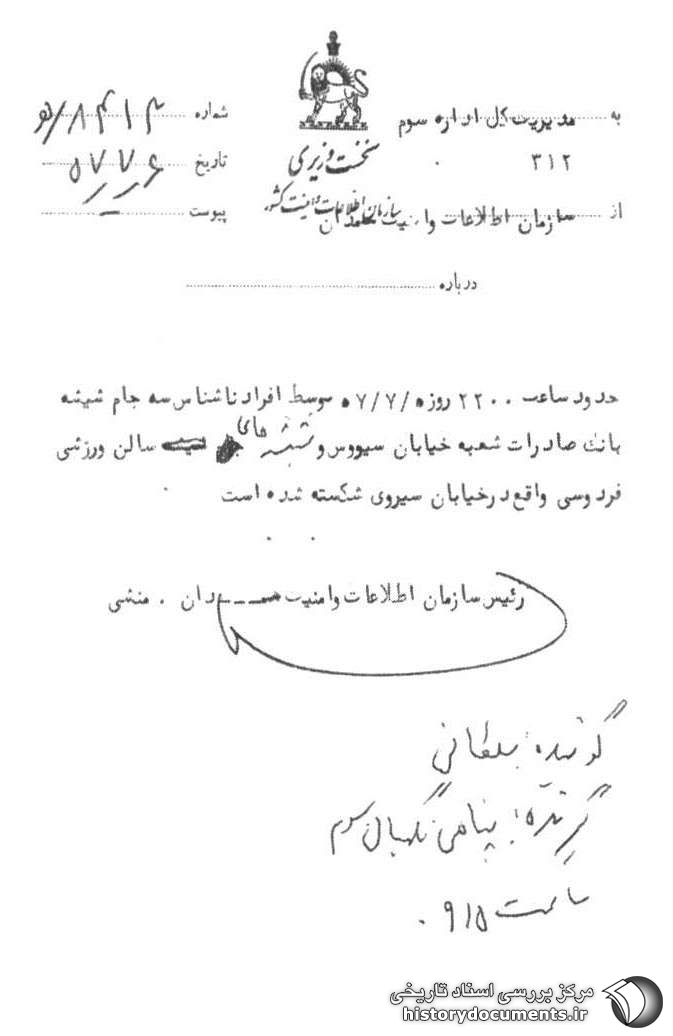 به مدیریت کل اداره سوم
۳۱۲
از سازمان اطلاعات و امنیت همدان
نخست وزیری
سازمان اطلاعات و امنیت کشور
شماره ۸۴۱۳/هو
تاریخ
پیوست
درباره
حدود ساعت ۲۲۰۰ روزه ۵۷/۷/ توسط افراد ناشناس سه جام شیشه
بانک صادرات شعبه خیابان سیروس و شیشه های سالن ورزشی
فردوسی واقع در خیابان سیروی شکسته شده است
رئیس سازمان اطلاعات و امنیت همـــدان . منشی
گوینده: سلطانی
گیرنده: پناهی نگهبان سوم
ساعت ۹۱۵
مرکز بررسی اسناد تاریخی
historydocuments.ir